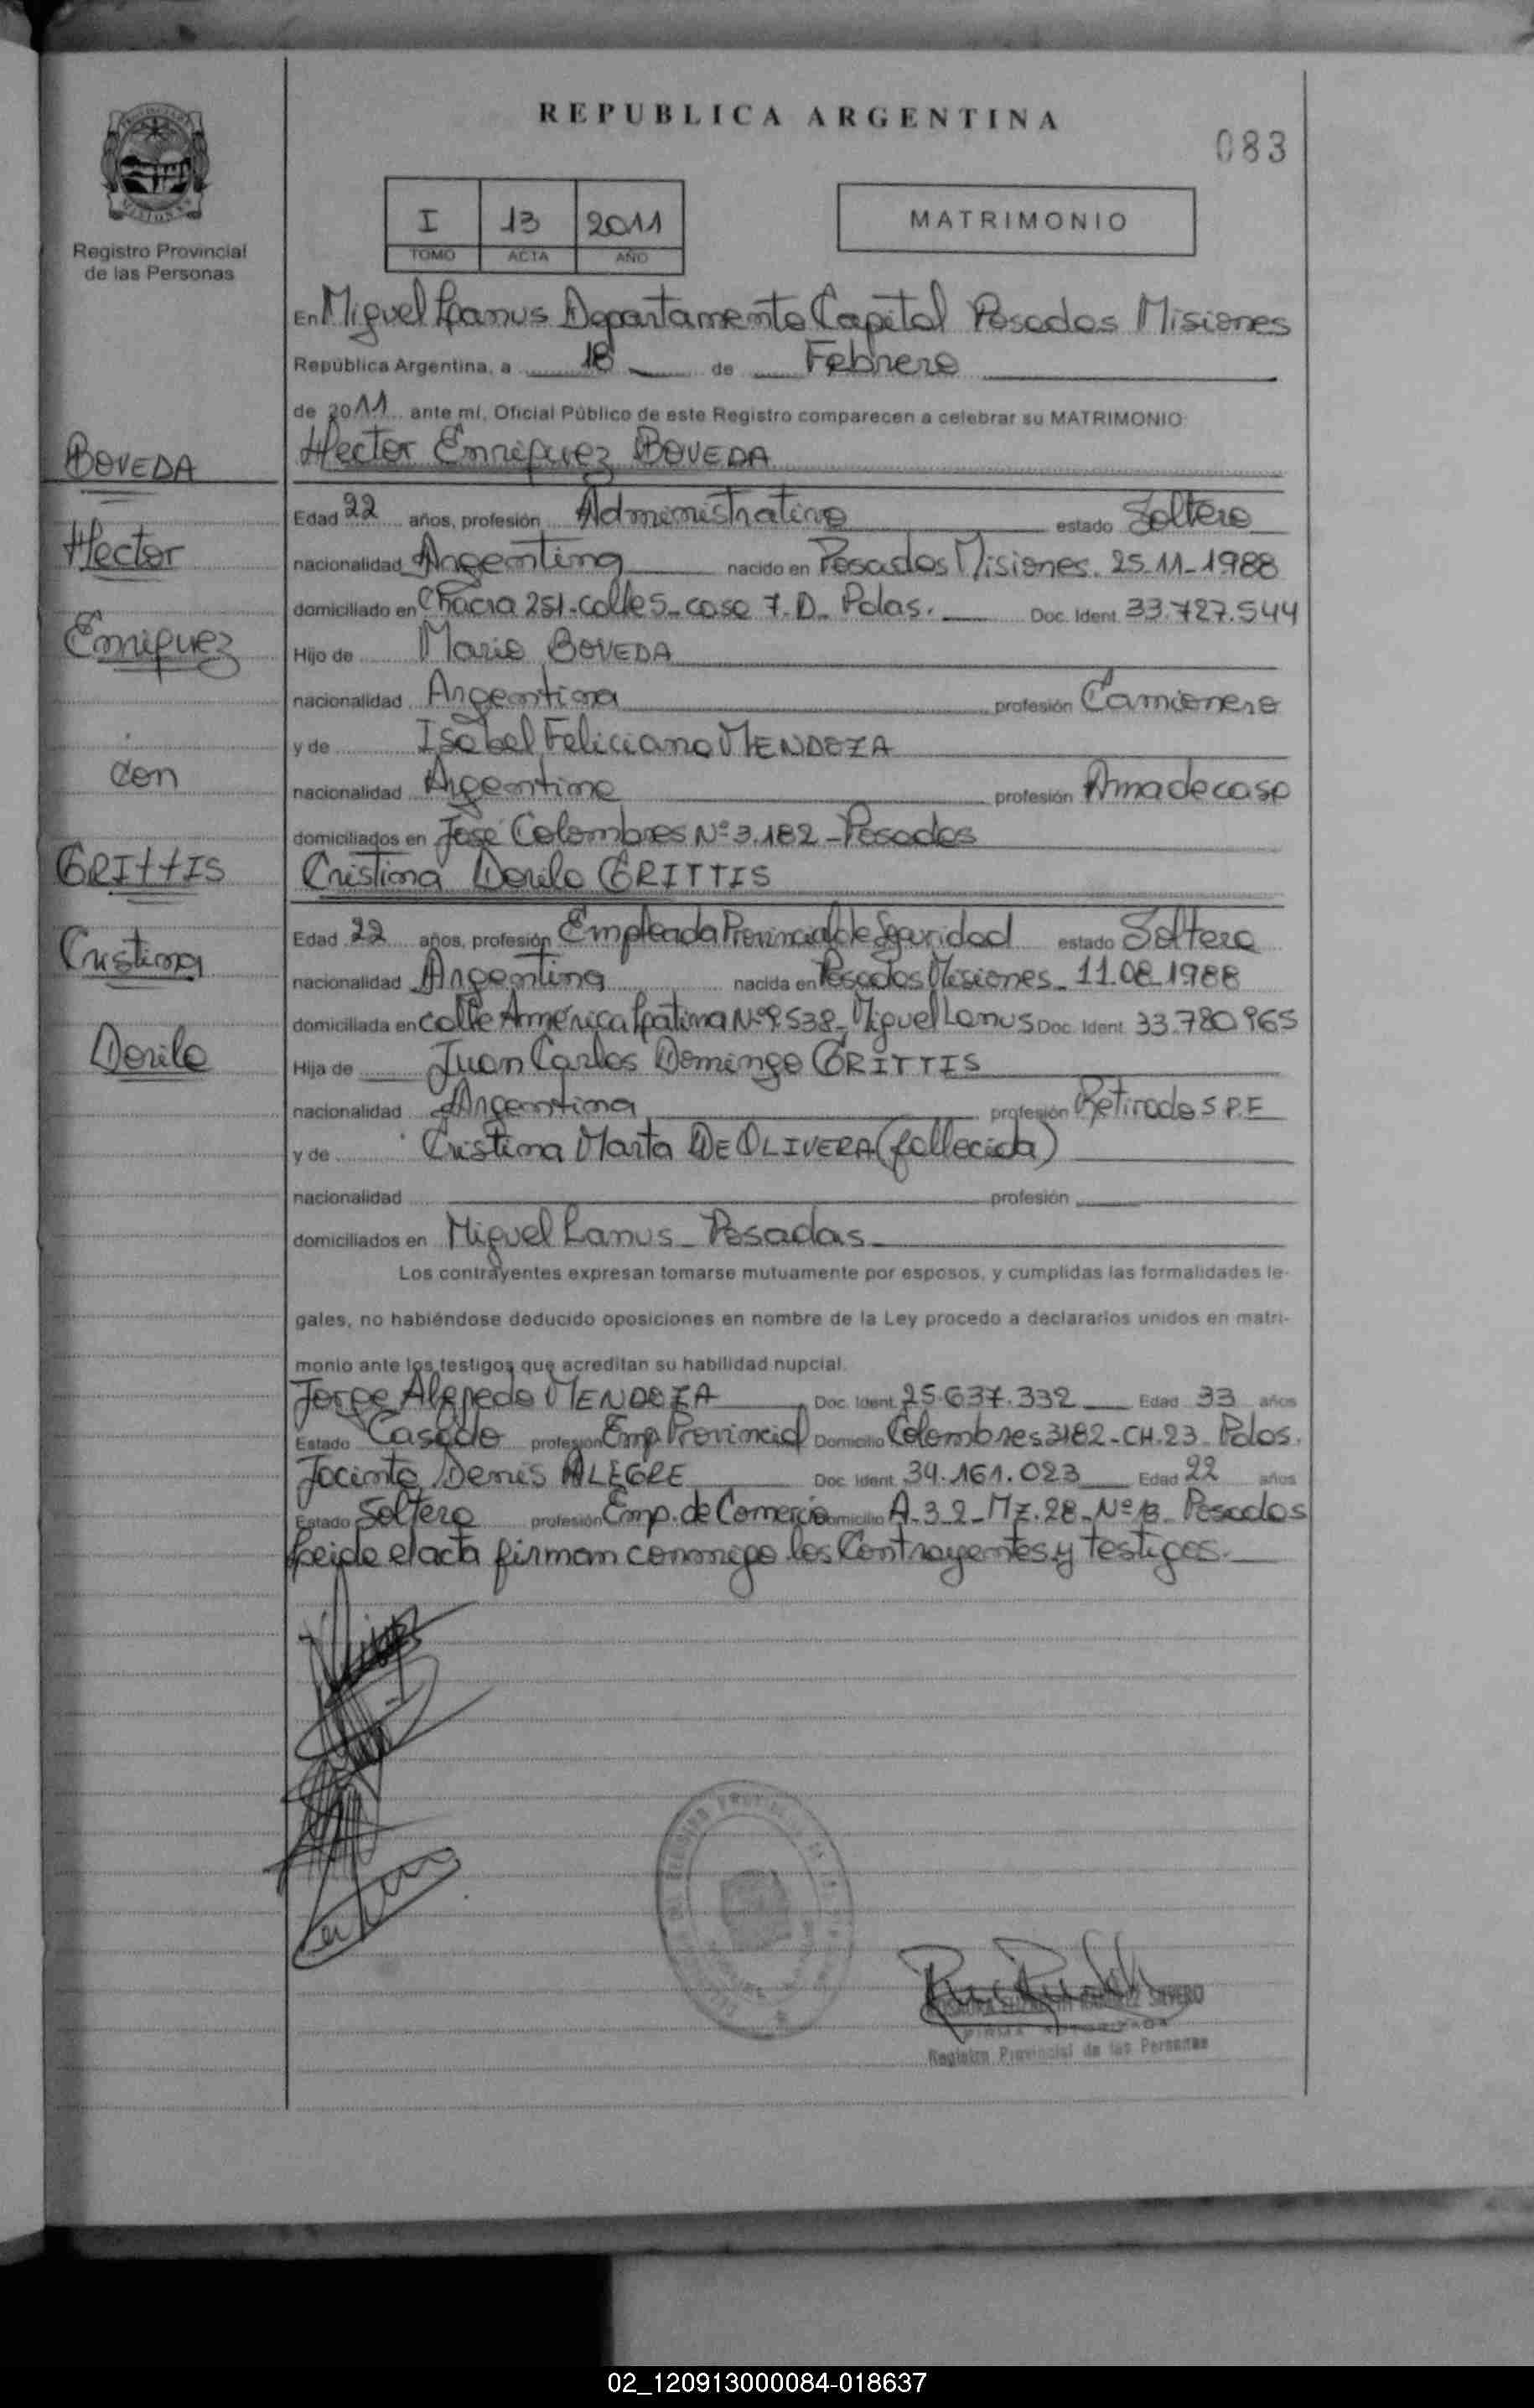 REPUBLICA ARGENTINA
083
Registro Provincial
de las Personas
I 13 2011
TOMO ACTA AÑO
MATRIMONIO
En Miguel Lanus Departamento Capital Posadas Misiones
República Argentina, a 18 de Febrero
de 2011 ante mí, Oficial Público de este Registro comparecen a celebrar su MATRIMONIO:
Hector Enriquez BOVEDA
BOVEDA
Hector
Enriquez
con
GRITTIS
Cristina
Dorila
Edad 22 años, profesión Administrativo estado Soltero
nacionalidad Argentina nacido en Posadas Misiones. 25-11-1988
domiciliado en Chacra 251-calle 5-casa 7.D- Pdas. Doc. Ident. 33.727.544
Hijo de Mario BOVEDA
nacionalidad Argentina profesión Camionero
y de Isabel Feliciana MENDOZA
nacionalidad Argentina profesión Ama de casa
domiciliados en José Colombres Nº 3.182 - Posadas
Cristina Dorila GRITTIS
Edad 22 años, profesión Empleada Provincial de Seguridad estado Soltera
nacionalidad Argentina nacida en Posadas Misiones - 11.08.1988
domiciliada en calle América Latina Nº 9538 - Miguel Lanus Doc. Ident. 33.780.965
Hija de Juan Carlos Domingo GRITTIS
nacionalidad Argentina profesión Retirado S.P.F
y de Cristina Marta DE OLIVERA (fallecida)
nacionalidad profesión
domiciliados en Miguel Lanus - Posadas
Los contrayentes expresan tomarse mutuamente por esposos, y cumplidas las formalidades le-
gales, no habiéndose deducido oposiciones en nombre de la Ley procedo a declararlos unidos en matri-
monio ante los testigos que acreditan su habilidad nupcial.
Jorge Alfredo MENDOZA Doc. Ident. 25.637.332 Edad 33 años
Estado Casado profesión Emp. Provincial Domicilio Colombres 3182-CH.23- Pdas.
Jacinto Denis ALEGRE Doc. Ident. 34.161.023 Edad 22 años
Estado Soltero profesión Emp. de Comercio Domicilio A-3 2-Mz.28-Nº 13- Posadas
Leida el acta firman conmigo los Contrayentes y testigos.
RAMIREZ SILVERO
FIRMA AUTORIZADA
Registro Provincial de las Personas
02_120913000084-018637